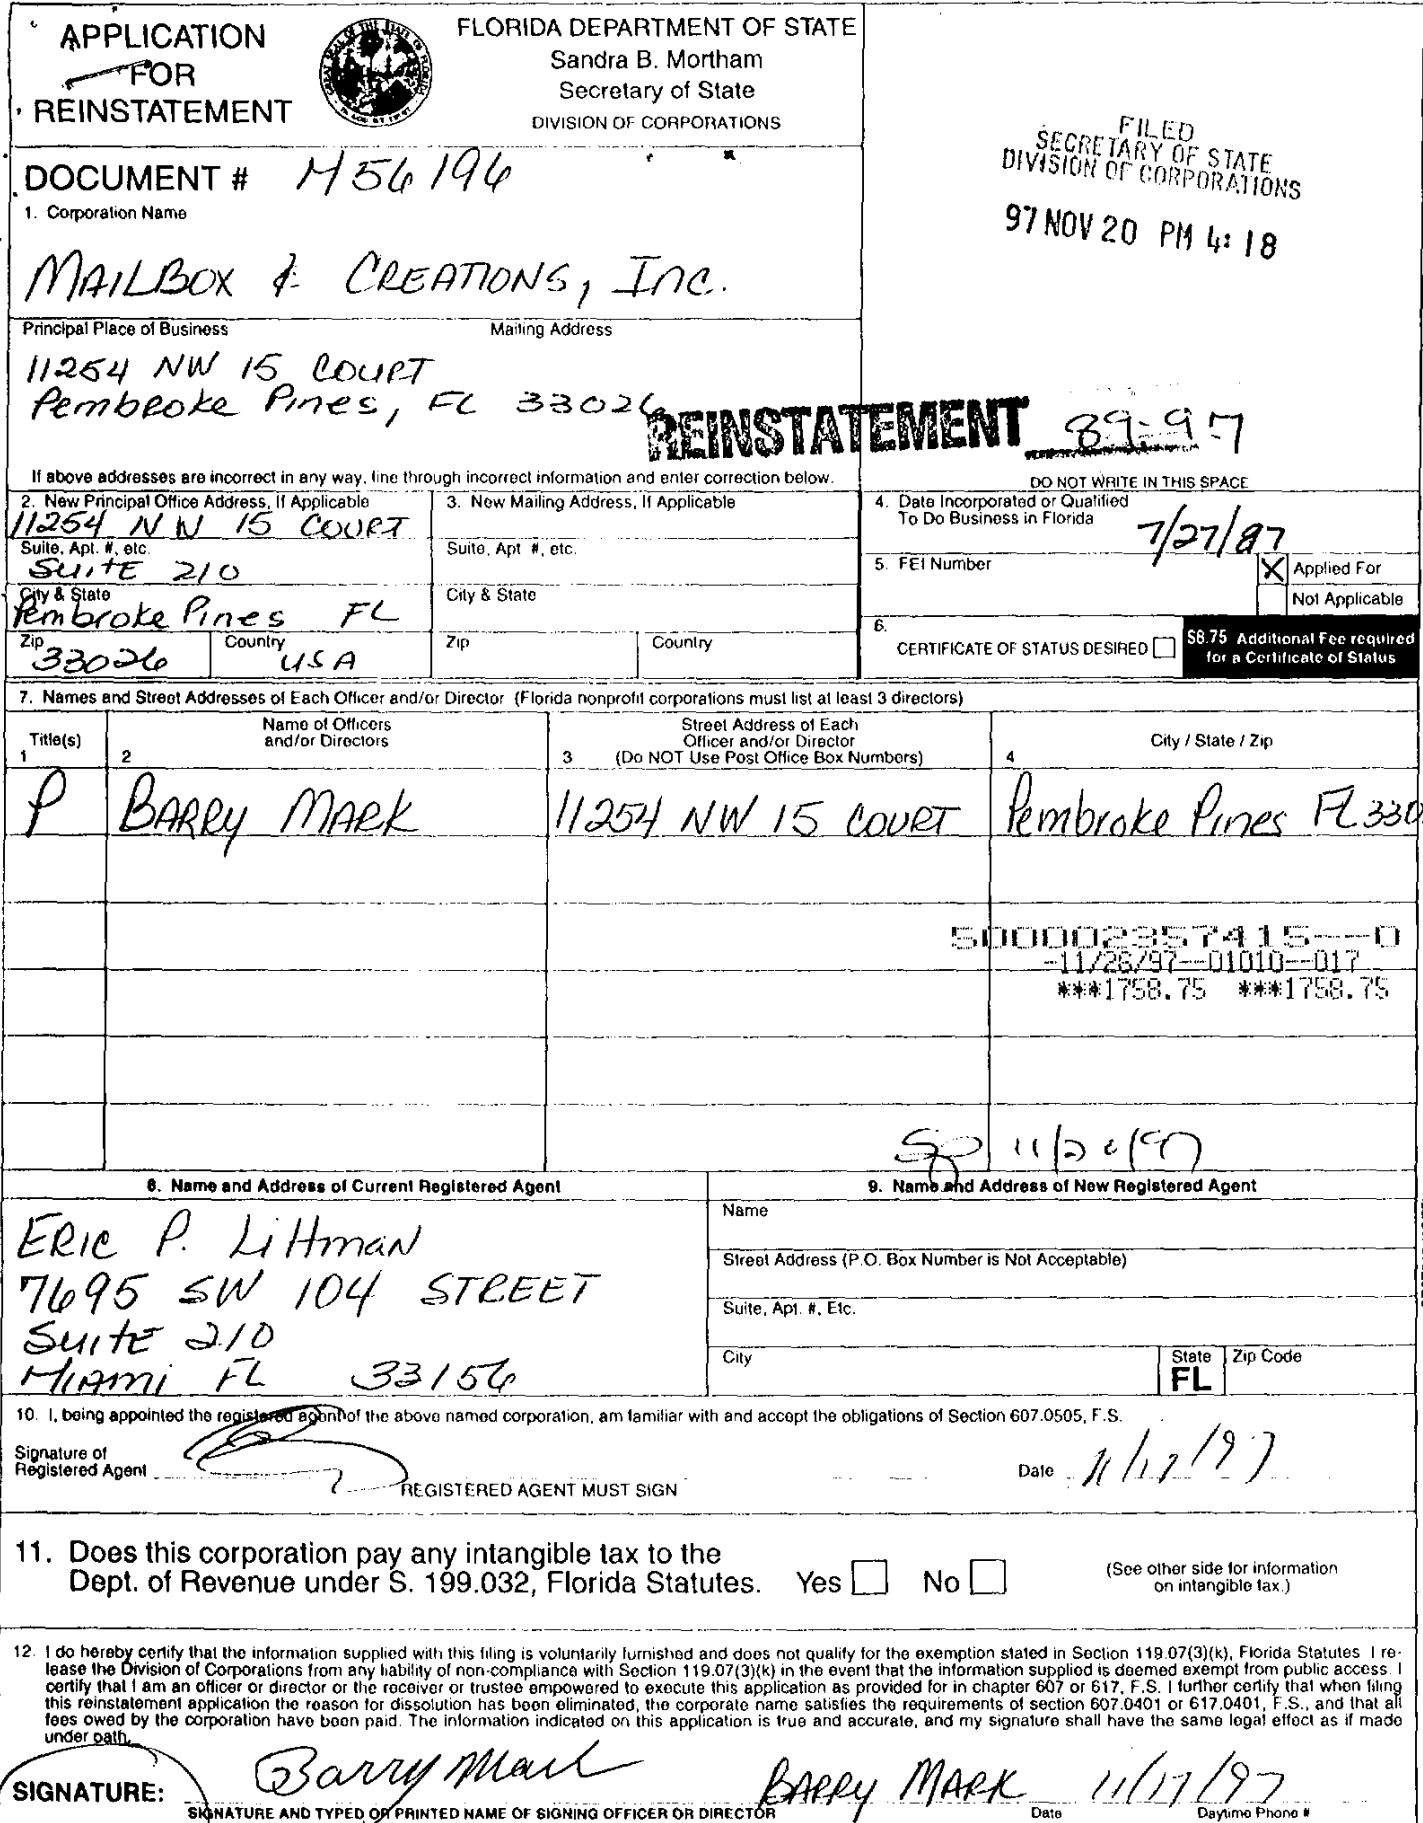 APPLICATION
FOR
REINSTATEMENT
FLORIDA DEPARTMENT OF STATE
Sandra B. Mortham
Secretary of State
DIVISION OF CORPORATIONS
FILED
SECRETARY OF STATE
DIVISION OF CORPORATIONS
97 NOV 20 PM 4: 18
DOCUMENT # M56196
1. Corporation Name
MAILBOX & CREATIONS, Inc.
Principal Place of Business Mailing Address
11254 NW 15 COURT
Pembroke Pines, FL 33026
REINSTATEMENT 89-97
If above addresses are incorrect in any way, line through incorrect information and enter correction below.
DO NOT WRITE IN THIS SPACE
2. New Principal Office Address, If Applicable
11254 NW 15 COURT
Suite, Apt. #, etc.
SUITE 210
City & State
Pembroke Pines FL
Zip
33026
Country
USA
3. New Mailing Address, If Applicable
Suite, Apt #, etc.
City & State
Zip
Country
4. Date Incorporated or Qualified
To Do Business in Florida
7/27/87
5. FEI Number
X Applied For
Not Applicable
6.
CERTIFICATE OF STATUS DESIRED
$8.75 Additional Fee required
for a Certificate of Status
7. Names and Street Addresses of Each Officer and/or Director (Florida nonprofit corporations must list at least 3 directors)
Title(s)
1
Name of Officers
and/or Directors
2
Street Address of Each
Officer and/or Director
3 (Do NOT Use Post Office Box Numbers)
City / State / Zip
4
P BARRY MARK 11254 NW 15 COURT Pembroke Pines FL 330
500002357415--0
-11/26/97--01010--017
***1758.75 ***1758.75
8. Name and Address of Current Registered Agent
ERIC P. Littman
7695 SW 104 STREET
SUITE 210
MIAMI FL 33156
9. Name and Address of New Registered Agent
Name
Street Address (P.O. Box Number is Not Acceptable)
Suite, Apt. #, Etc.
City
State
FL
Zip Code
10. I, being appointed the registered agent of the above named corporation, am familiar with and accept the obligations of Section 607.0505, F.S.
Signature of
Registered Agent
REGISTERED AGENT MUST SIGN
Date 11/17/97
11. Does this corporation pay any intangible tax to the
Dept. of Revenue under S. 199.032, Florida Statutes. Yes No
(See other side for information
on intangible tax.)
12. I do hereby certify that the information supplied with this filing is voluntarily furnished and does not qualify for the exemption stated in Section 119.07(3)(k), Florida Statutes I re-
lease the Division of Corporations from any liability of non-compliance with Section 119.07(3)(k) in the event that the information supplied is deemed exempt from public access. I
certify that I am an officer or director or the receiver or trustee empowered to execute this application as provided for in chapter 607 or 617, F.S. I further certify that when filing
this reinstatement application the reason for dissolution has been eliminated, the corporate name satisfies the requirements of section 607.0401 or 617.0401, F.S., and that all
fees owed by the corporation have been paid. The information indicated on this application is true and accurate, and my signature shall have the same legal effect as if made
under oath.
SIGNATURE: Barry Mark BARRY MARK 11/17/97
SIGNATURE AND TYPED OR PRINTED NAME OF SIGNING OFFICER OR DIRECTOR Date Daytime Phone #